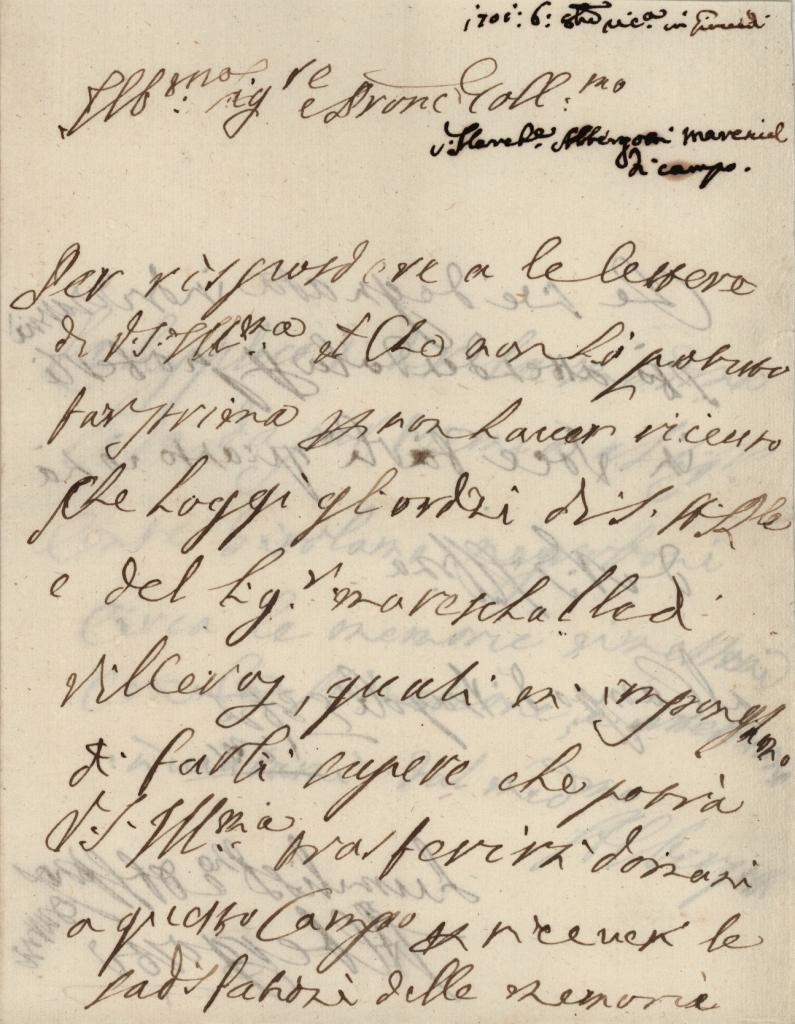 1701: 6: 8bre
Ill.mo Sig.re e Pron Coll.mo
Albergotti marescial
di campo.
Per rispondere a le lettere
di V.S. Ill.ma et che non ho potuto
far prima p non haver riceuto
che hoggi gl ordini di S. A. Rle
e del Sig.r mareschalle di
Villeroy, quali m' impongano
di farli sapere che potrà
V.S. Ill.ma trasferirsi domani
a questo Campo p ricever le
sadisfationi delle memorie